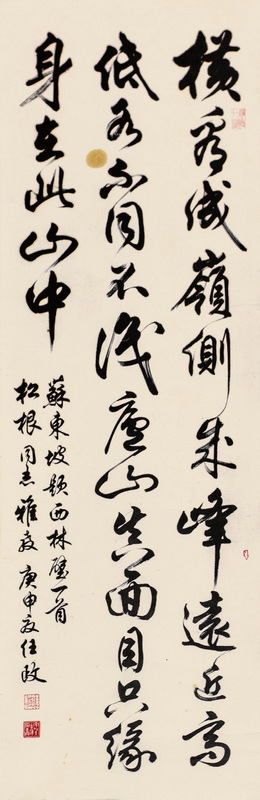 橫看成嶺側成峰遠近高
低各不同不識廬山真面目只緣
身在此山中
蘇東坡題西林壁一首
松根同志雅教 庚申夏任政